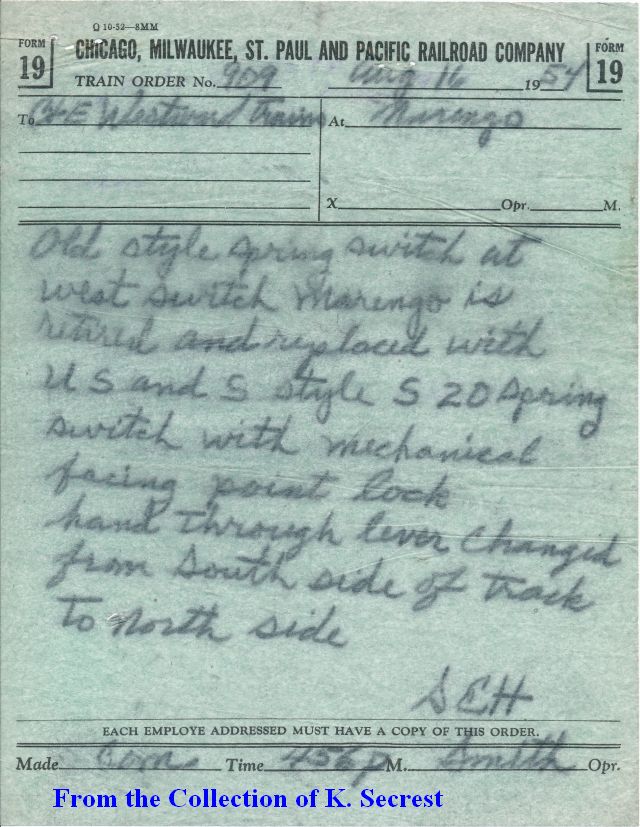 Q 10-52—8MM
FORM 19
CHICAGO, MILWAUKEE, ST. PAUL AND PACIFIC RAILROAD COMPANY
FORM 19
TRAIN ORDER No. 909 Aug 16 1954
To C&E Westward Trains At Marengo
X Opr. M.
Old style spring switch at
west switch Marengo is
retired and replaced with
U S and S style S 20 spring
switch with mechanical
facing point lock
hand through lever changed
from South side of track
to north side
SEH
EACH EMPLOYE ADDRESSED MUST HAVE A COPY OF THIS ORDER.
Made Com Time 456 p M. Smith Opr.
From the Collection of K. Secrest